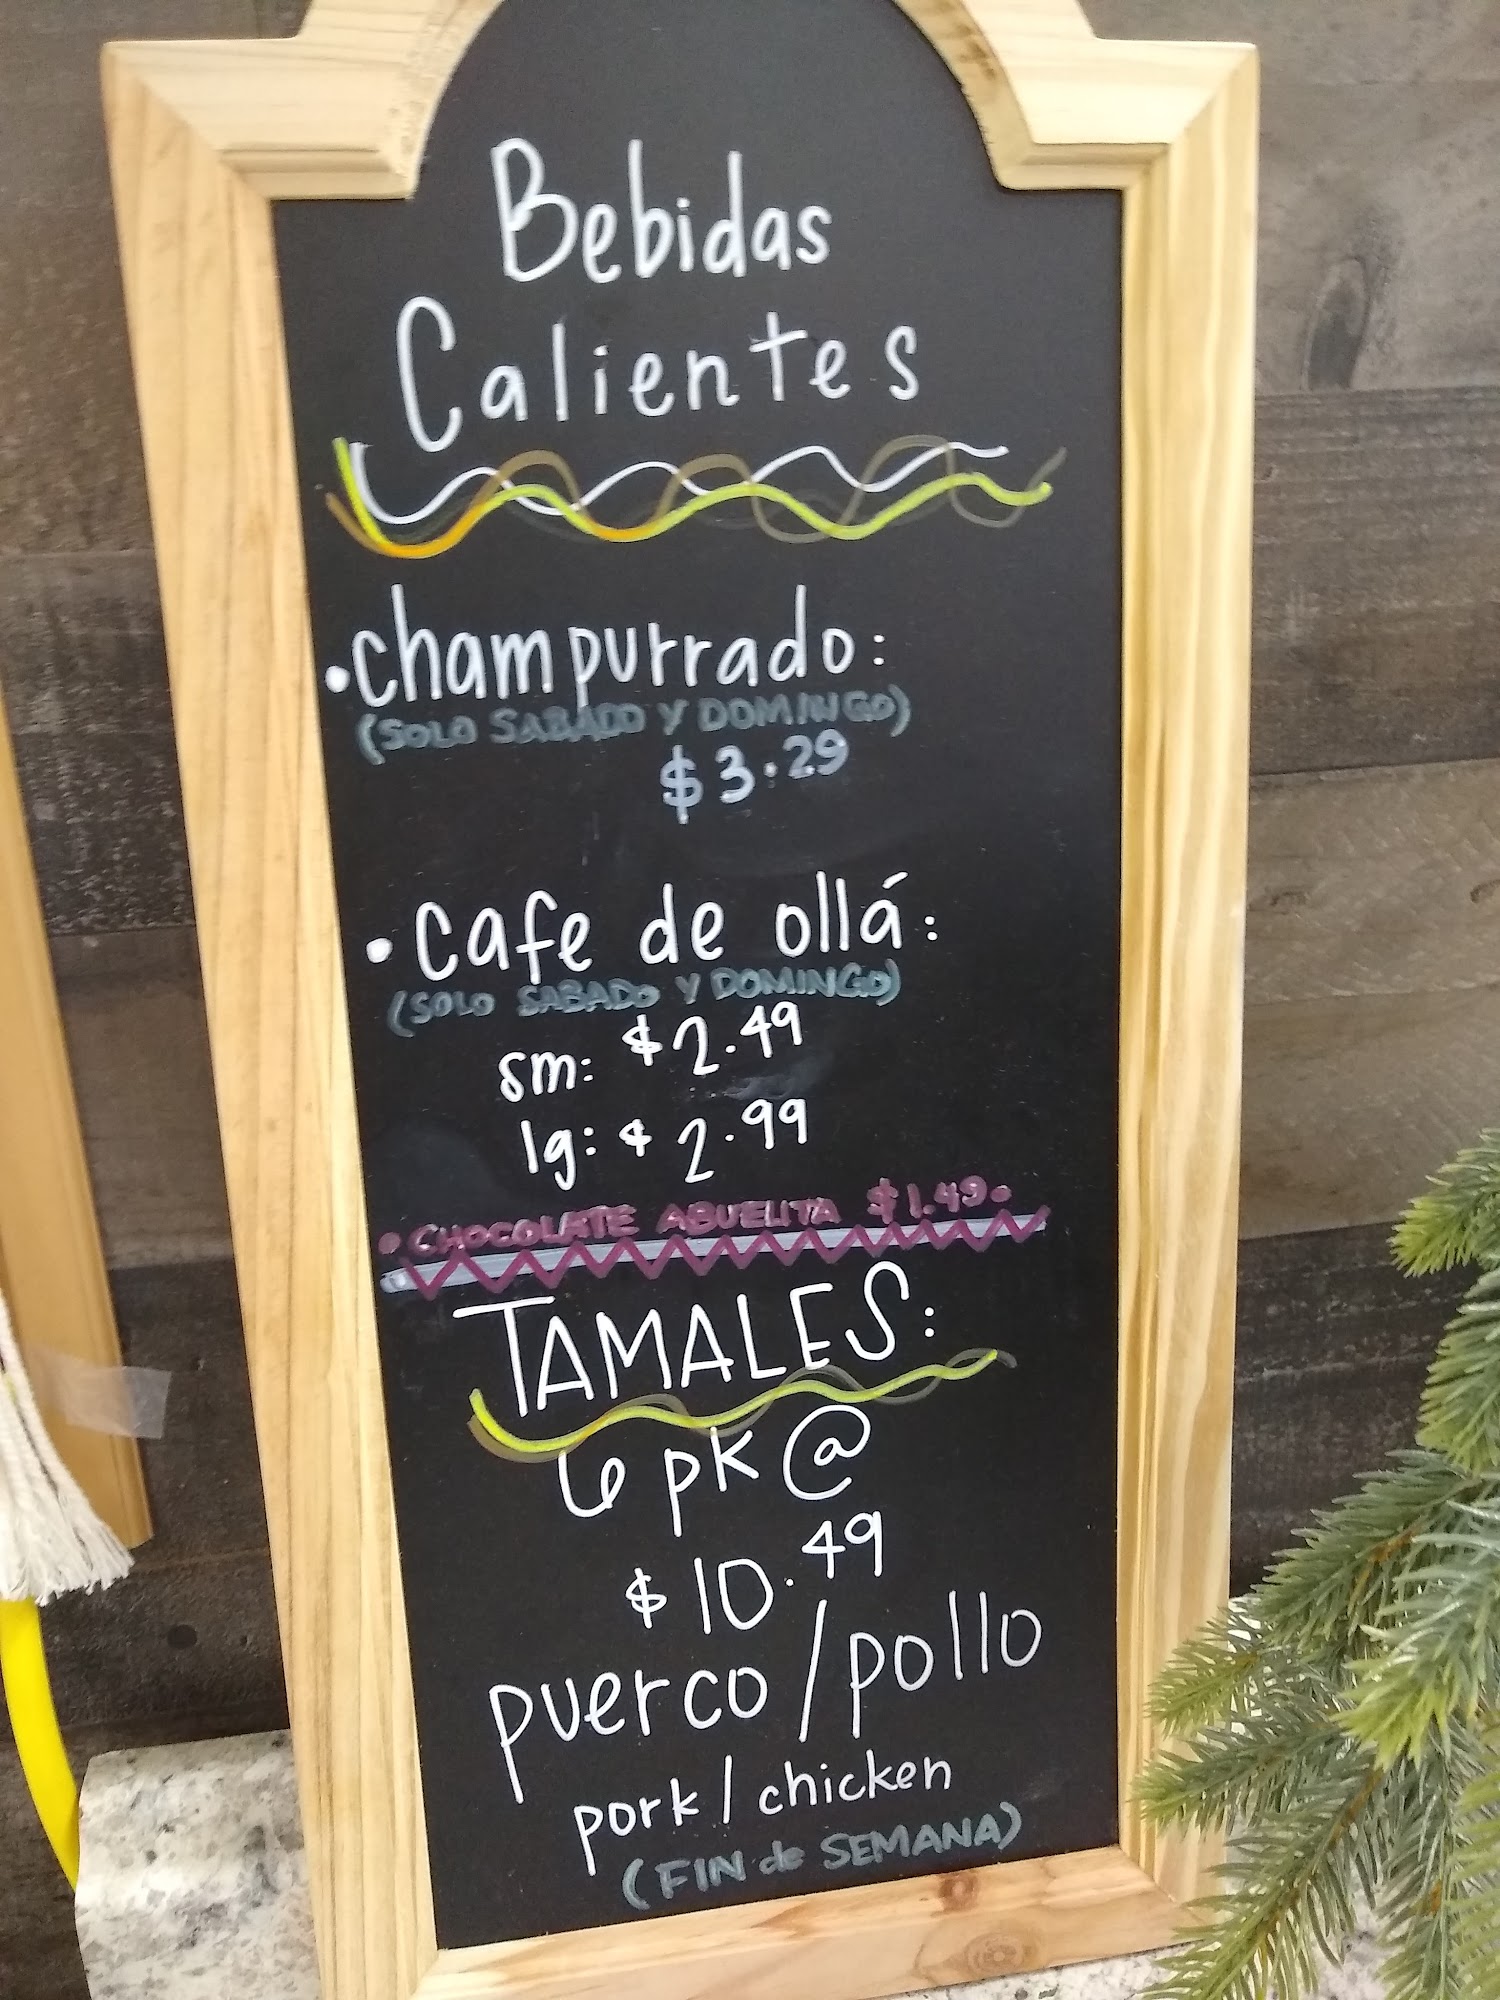 Bebidas
Calientes
•champurrado:
(SOLO SABADO Y DOMINGO)
$3.29
•cafe de ollá:
(SOLO SABADO Y DOMINGO)
sm: $2.49
lg: $2.99
•CHOCOLATE ABUELITA $1.49•
TAMALES:
6 pk @
$10.49
puerco/pollo
pork/chicken
(FIN de SEMANA)